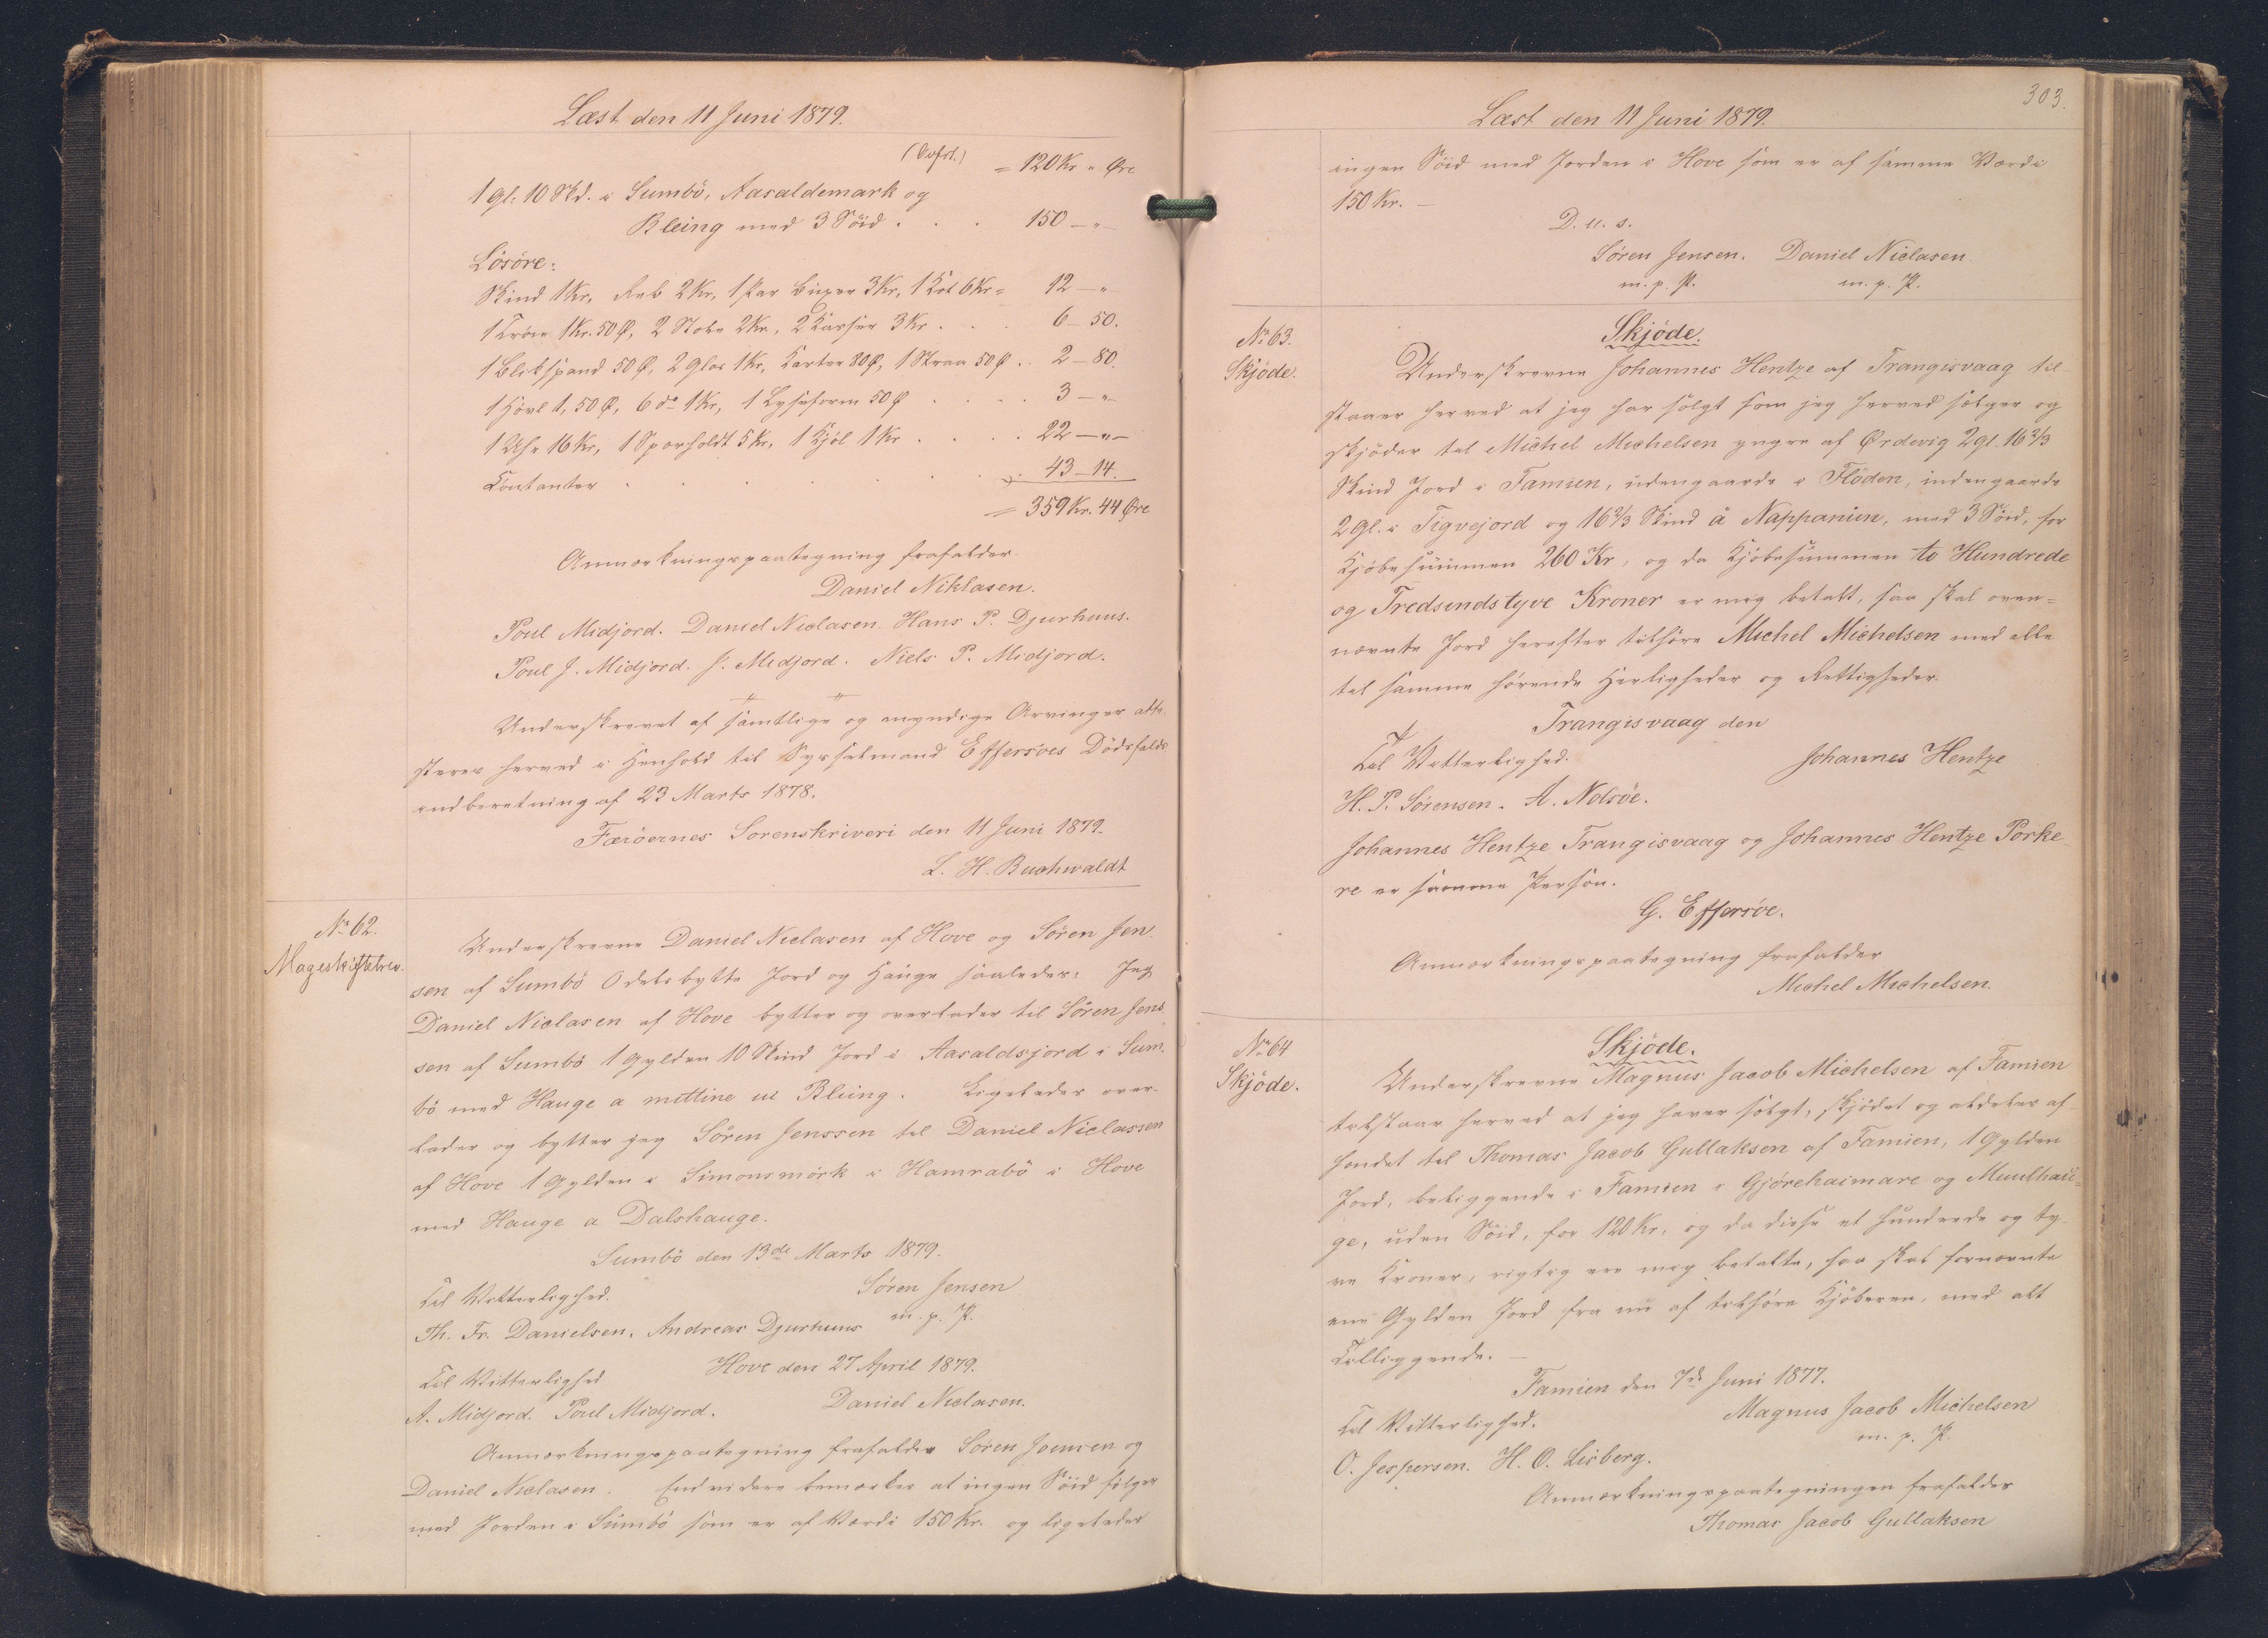 Læst den 11 Juni 1879.
= 120 Kr " Øre
1 Gl: 10 Skd. i Sumbö, Aasaldemark og
Bleing med 3 Söid . . . 150 — " —
Lösöre:
Skind 1 Kr, Reb 2 Kr, 1 Par Buxer 3 Kr, 1 6 Kr = 12 — "
1 Tröie 1 Kr. 50 Ø, 2 Stole 2 Kr, 2 3 Kr . . . 6 — 50.
1 Blikspand 50 Ø, 2 Glas 1 Kr, Karter 80 Ø, 1 50 Ø . . 2 — 80.
1 Hövl 1, 50 Ø, 6 do 1 Kr, 1 Lyseform 50 Ø . . . . 3 — "
1 Uhr 16 Kr, 1 5 Kr, 1 Kjöl 1 Kr . . . . 22 — " —
Contanter . . . . . . 43 — 14.
= 359 Kr. 44 Øre
Anmærkningspaategning frafalder.
Daniel Niklasen.
Poul Midjord. Daniel Niclasen. Hans P. Djurhuus.
Poul J. Midjord. J. Midjord. Niels P. Midjord.
Underskrevet af samtlige og myndige Arvinger atte-
steres herved i Henhold til Sysselmand Effersöes Dödsfalds
indberetning af 23 Marts 1878.
Færöernes Sorenskriveri den 11 Juni 1879.
L. H. Buchwaldt
No 62.
Mageskiftebrev.
Underskrevne Daniel Niclasen af Hove og Sören Jen-
sen af Sumbö Odelsbytte Jord og Hauge saaledes: Jeg
Daniel Niclasen af Hove bytter og overlader til Sören Jens
sen af Sumbö 1 Gylden 10 Skind Jord i Aasaldsjord i Sum-
bö med Hauge a mittine ui Bleing. Ligeledes over-
lader og bytter jeg Sören Jenssen til Daniel Niclassen
af Hove 1 Gylden i Simonsmörk i Hamrabö i Hove
med Hauge a Dalshauge.
Sumbö den 13de Marts 1879.
Til Vitterlighed. Sören Jensen
Th. Fr. Danielsen. Andreas Djurhuus m. p. P.
Hove den 27 April 1879.
Til Vitterlighed
A. Midjord. Poul Midjord. Daniel Niclasen.
Anmærkningspaategning frafalder Sören Jensen og
Daniel Niclasen. Endvidere bemærkes at ingen Söid fölger
med Jorden i Sumbö som er af Værdi 150 Kr. og ligeledes
303.
Læst den 11 Juni 1879.
ingen Söid med Jorden i Hove som er af samme Værdi
150 Kr. —
D. u. s.
Sören Jensen. Daniel Niclasen
m. p. P. m. p. P.
No 63.
Skjöde.
Skjöde.
Underskrevne Johannes Hentze af Trangisvaag til-
staaer herved at jeg har solgt som jeg herved sælger og
skjöder til Michel Michelsen yngre af Ørdevig 2 Gl. 16 2/3
Skind Jord i Famien, udengaards i Flöden, indengaards
2 Gl. i Tigvejord og 16 2/3 Skind å Nappanün, med 3 Söid, for
Kjöbesummen 260 Kr, og da Kjöbesummen to Hundrede
og Tredsindstyve Kroner er mig betalt, saa skal oven=
nævnte Jord herefter tilhöre Michel Michelsen med alle
til samme hörende Herligheder og Rettigheder.
Trangisvaag den
Til Vitterlighed. Johannes Hentze
H. P. Sörensen. A. Nolsöe.
Johannes Hentze Trangisvaag og Johannes Hentze Porke-
re er samme Person.
G. Effersöe.
Anmærkningspaategning frafalder
Michel Michelsen.
No 64
Skjöde.
Skjöde.
Underskrevne Magnus Jacob Michelsen af Famien
tilstaar herved at jeg haver solgt, skjödet og aldeles af-
hendet til Thomas Jacob Gullaksen af Famien, 1 Gylden
Jord, beliggende i Famien i Gjörehaimare og Muulhau=
ge, uden Söid, for 120 Kr. og da disse et hundrede og ty-
ve Kroner, rigtig ere mig betalte, saa skal fornævnte
ene Gylden Jord fra nu af tilhöre Kjöberen, med alt
Tilliggende. —
Famien den 7de Juni 1877.
Til Vitterlighed. Magnus Jacob Michelsen
m. p. P.
O. Jespersen. H. O. Lisberg.
Anmærkningspaategningen frafalder
Thomas Jacob Gullaksen